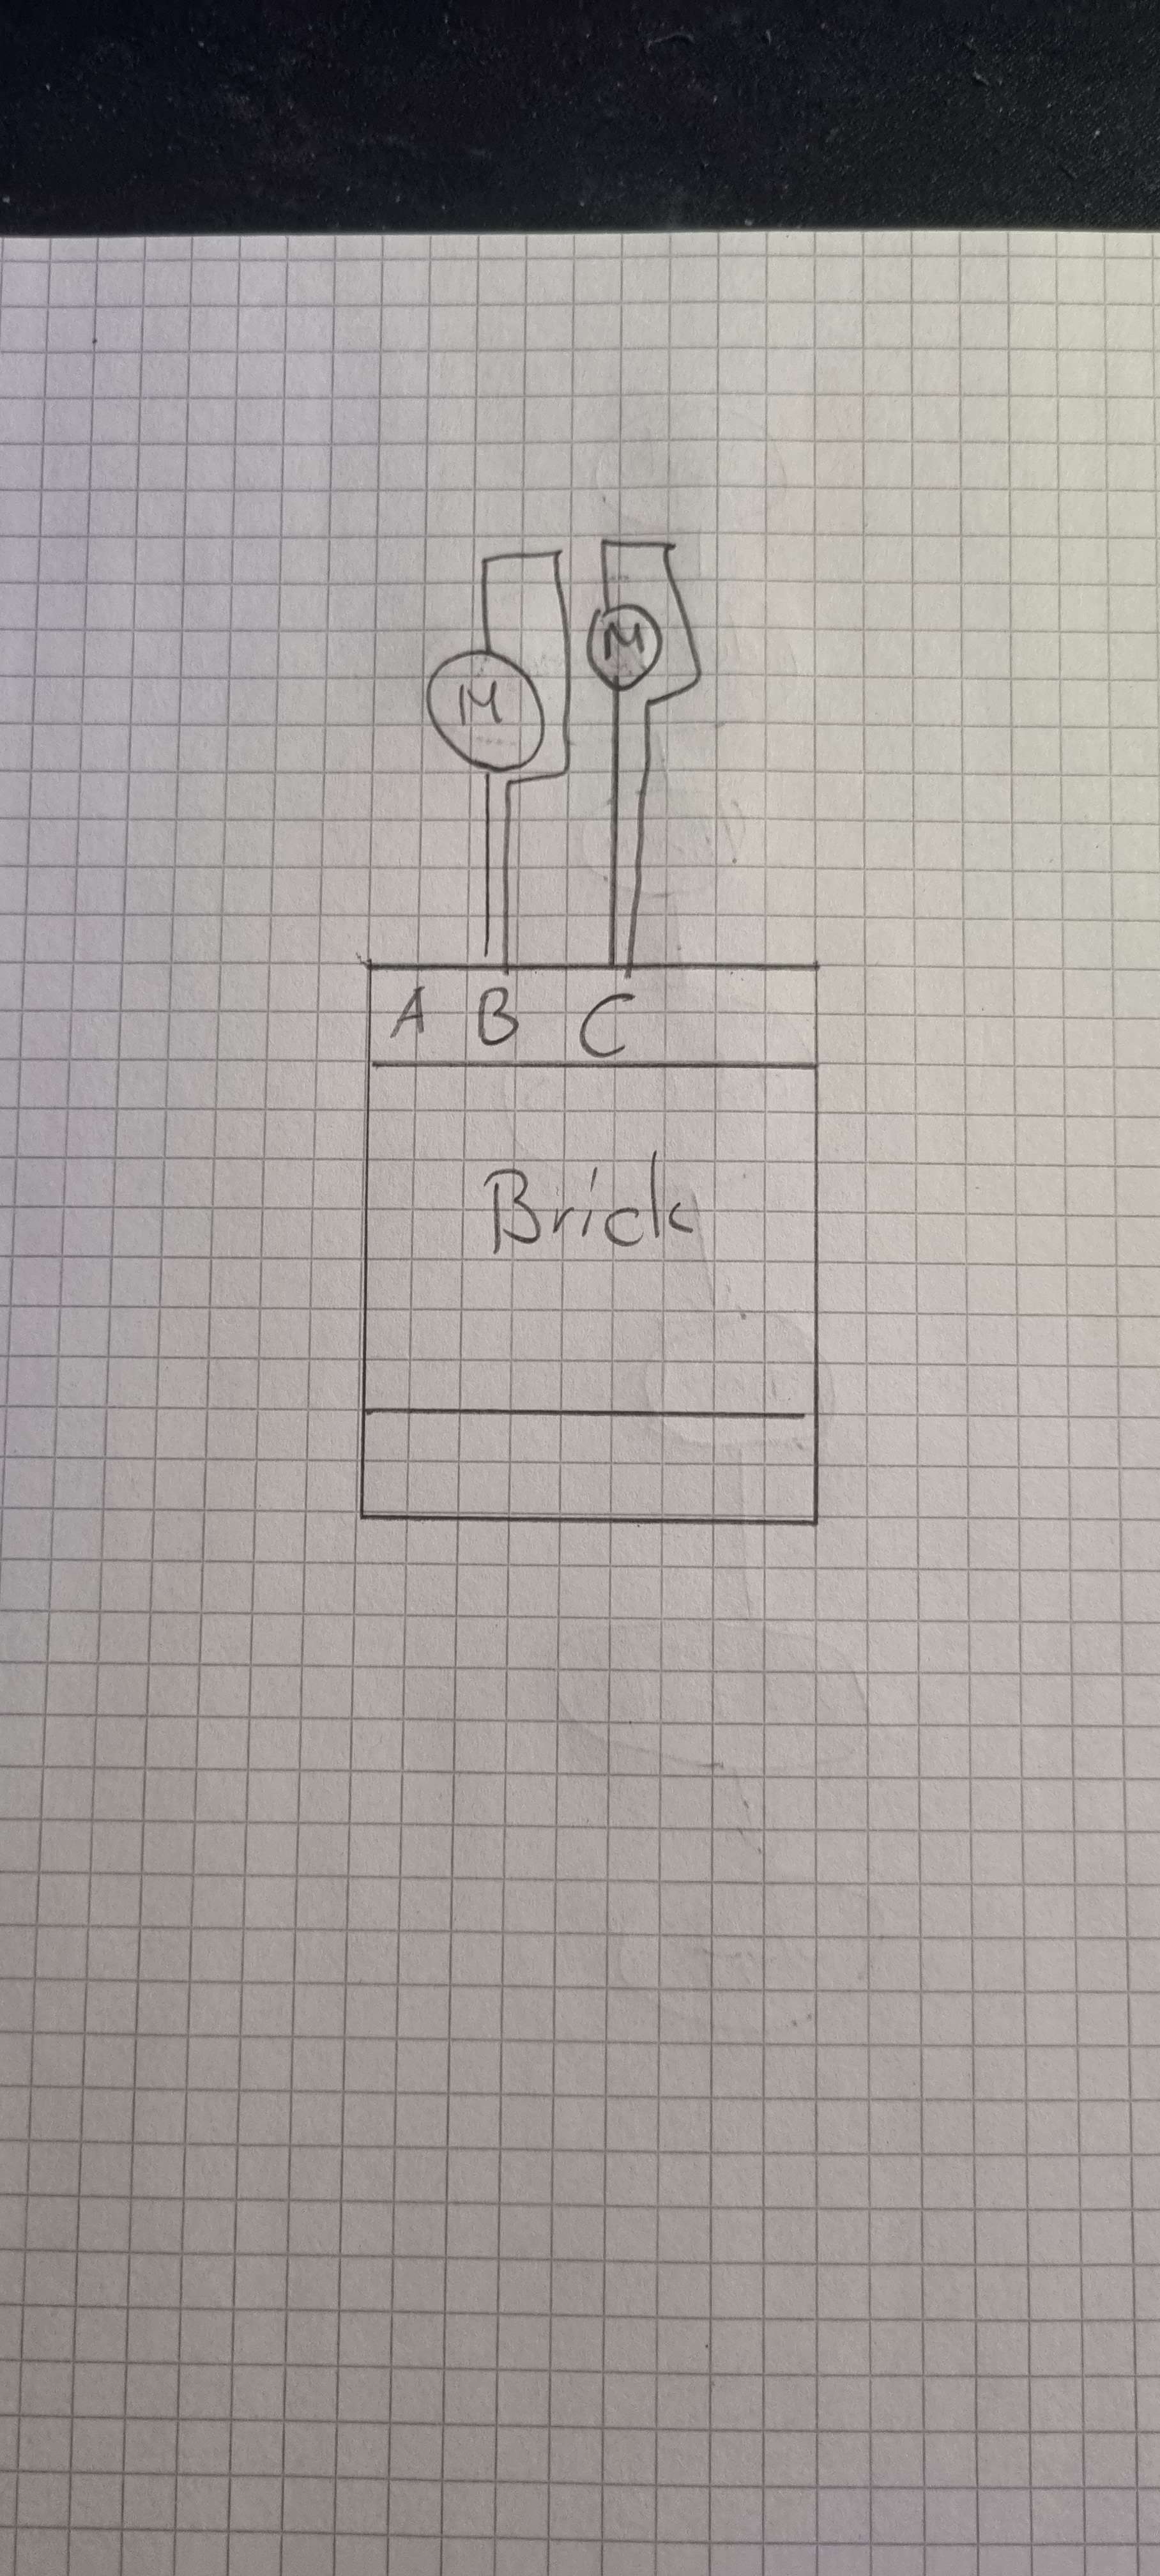 M M
A B C
Brick